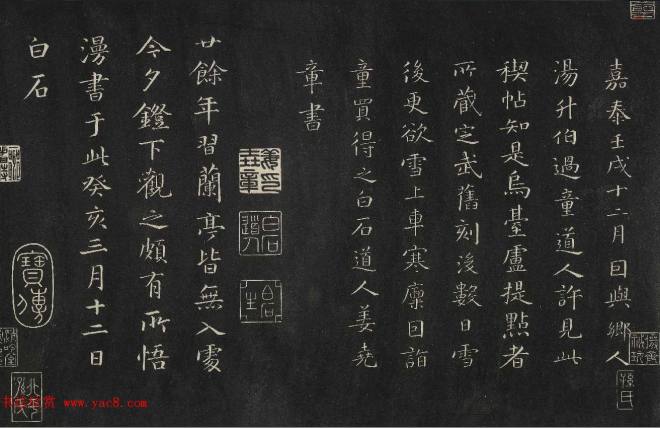 嘉泰壬戌十二月囙與鄉人
湯升伯過童道人許見此
稧帖知是烏臺盧提點者
所藏定武舊刻後數日雪
後更欲雪上車寒凜囙詣
童買得之白石道人姜堯
章書
廿餘年習蘭亭皆無入處
今夕鐙下觀之頗有所悟
漫書于此癸亥三月十二日
白石
寶傳
www.yac8.com